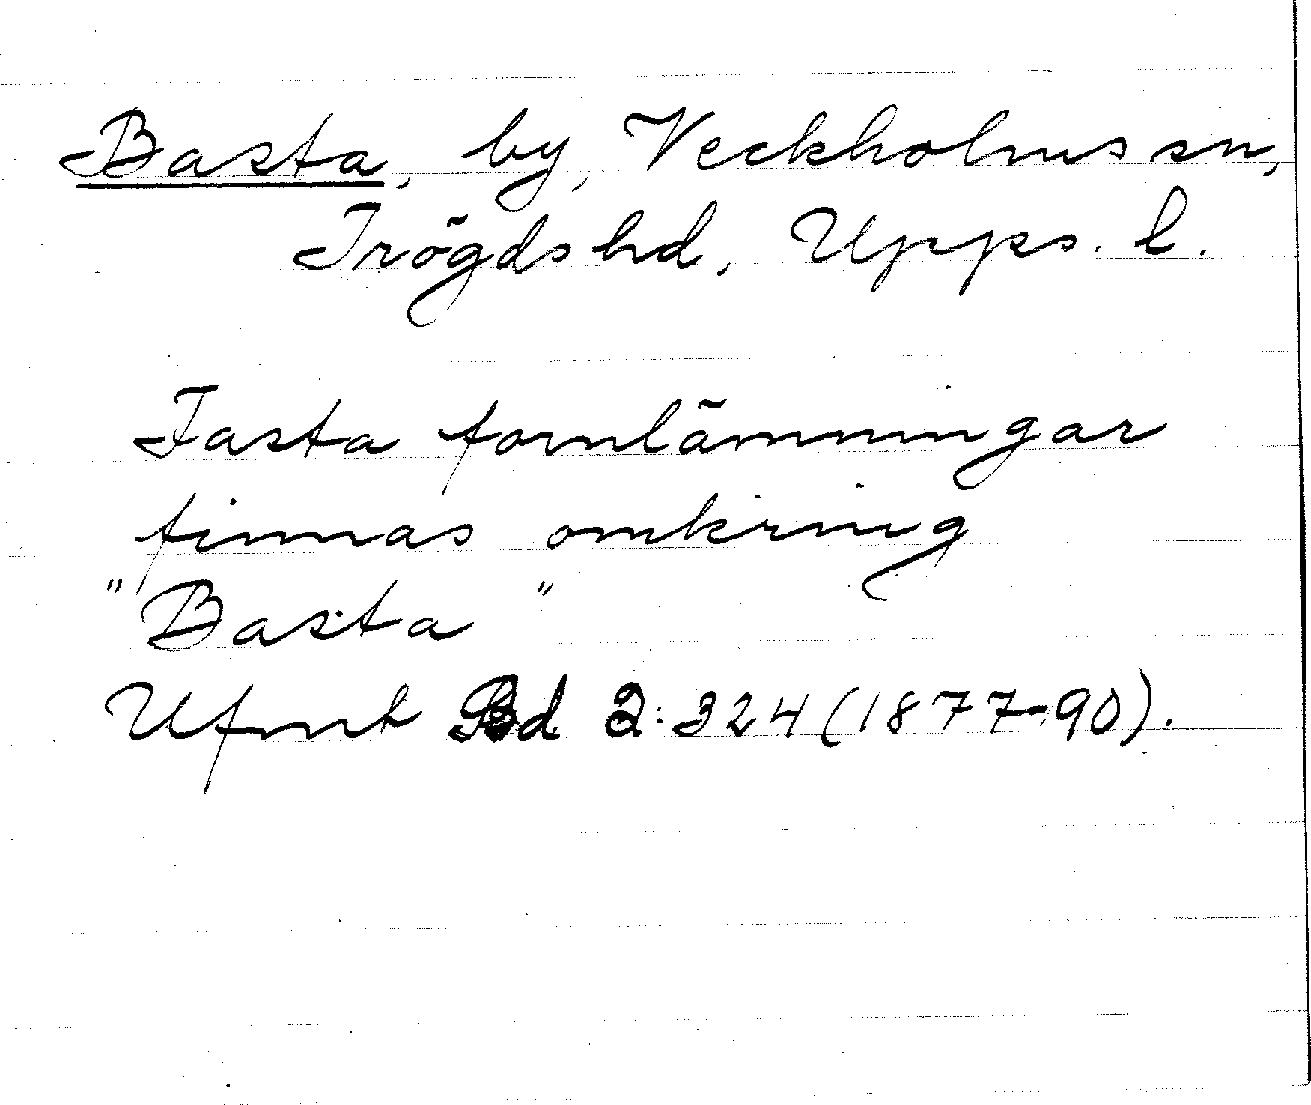 Basta, by, Veckholms sn,
Trögds hd, Upps. l.
Fasta fornlämningar
finnas omkring
"Basta"
Ufmt Bd 2:324 (1877-90).